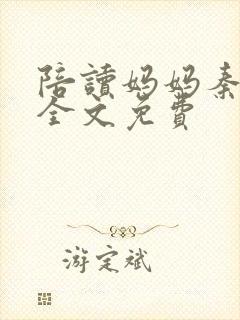 陪讀媽媽秦
全文免費
游定斌